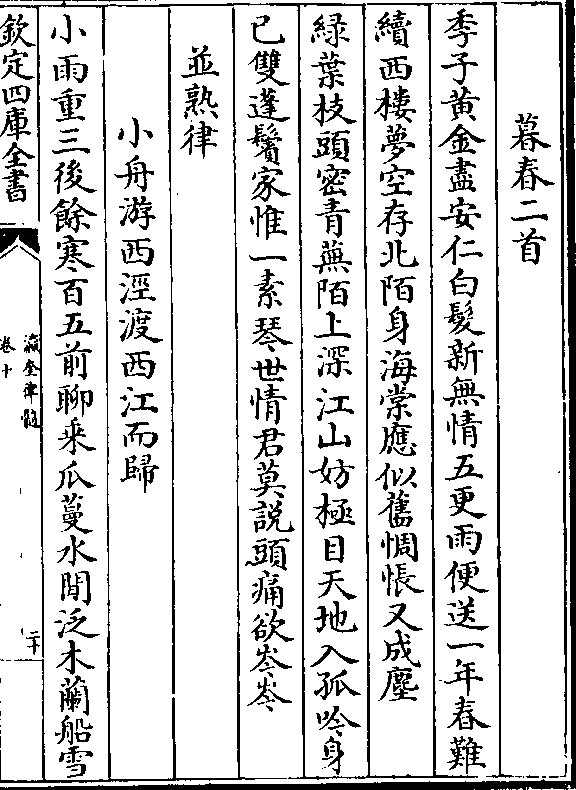 暮春二首
季子黃金盡安仁白髮新無情五更雨便送一年春難
續西樓夢空存北陌身海棠應似舊惆悵又成塵
緑葉枝頭密青蕪陌上深江山妨極目天地入孤吟身
已雙蓬鬢家惟一素琴世情君莫說頭痛欲岑岑
並熟律
小舟游西涇渡西江而歸
小雨重三後餘寒百五前聊乘瓜蔓水閒泛木蘭船雪
欽定四庫全書
瀛奎律髓
卷十
二十